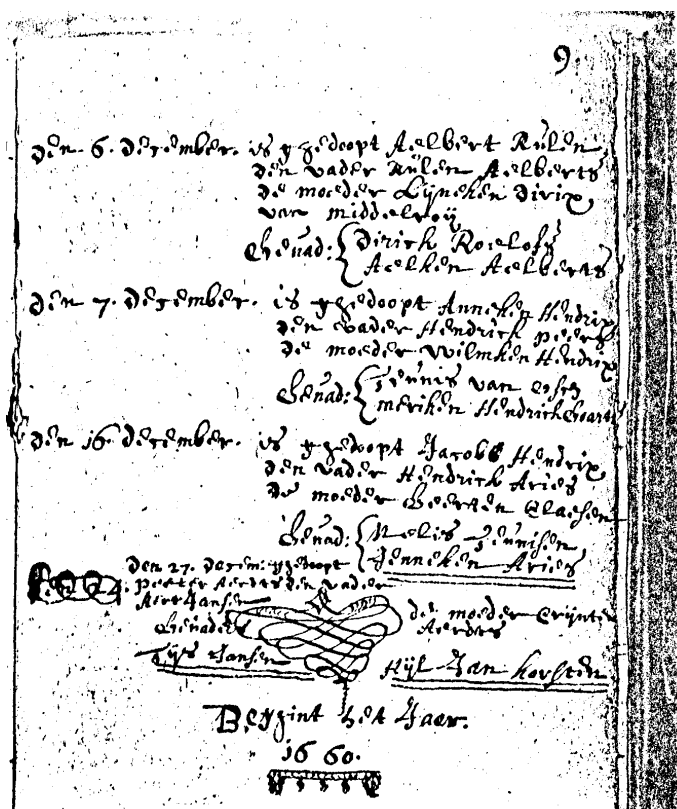 9
Den 6. December. is ghedoopt Aelbert Rulen
den vader Rulen Aelberts
de moeder Lijneken Dirix
van middelroij
Ghevad: Dirick Roelofs
Aelken Aelberts
Den 7. December. is ghedoopt Anneken Hendrix
den vader Hendrick peers
de moeder Wilmken Hendrix
Ghevad: Teunis van
meriken Hendrick
Den 16 december. is ghedoopt Jacobb Hendrix
den vader Hendrick Aries
de moeder Geerten Claesen
Ghevad: Melis Teunisen
Jenneken Aries
Den 27. Decem: ghedoopt
peeter Aerts den vader
Aert Jansen
de moeder Crijnten
Aerders
Ghevaders
Tijs Jansen
Hijl Jan Korsten
Begint het Jaer.
1660.